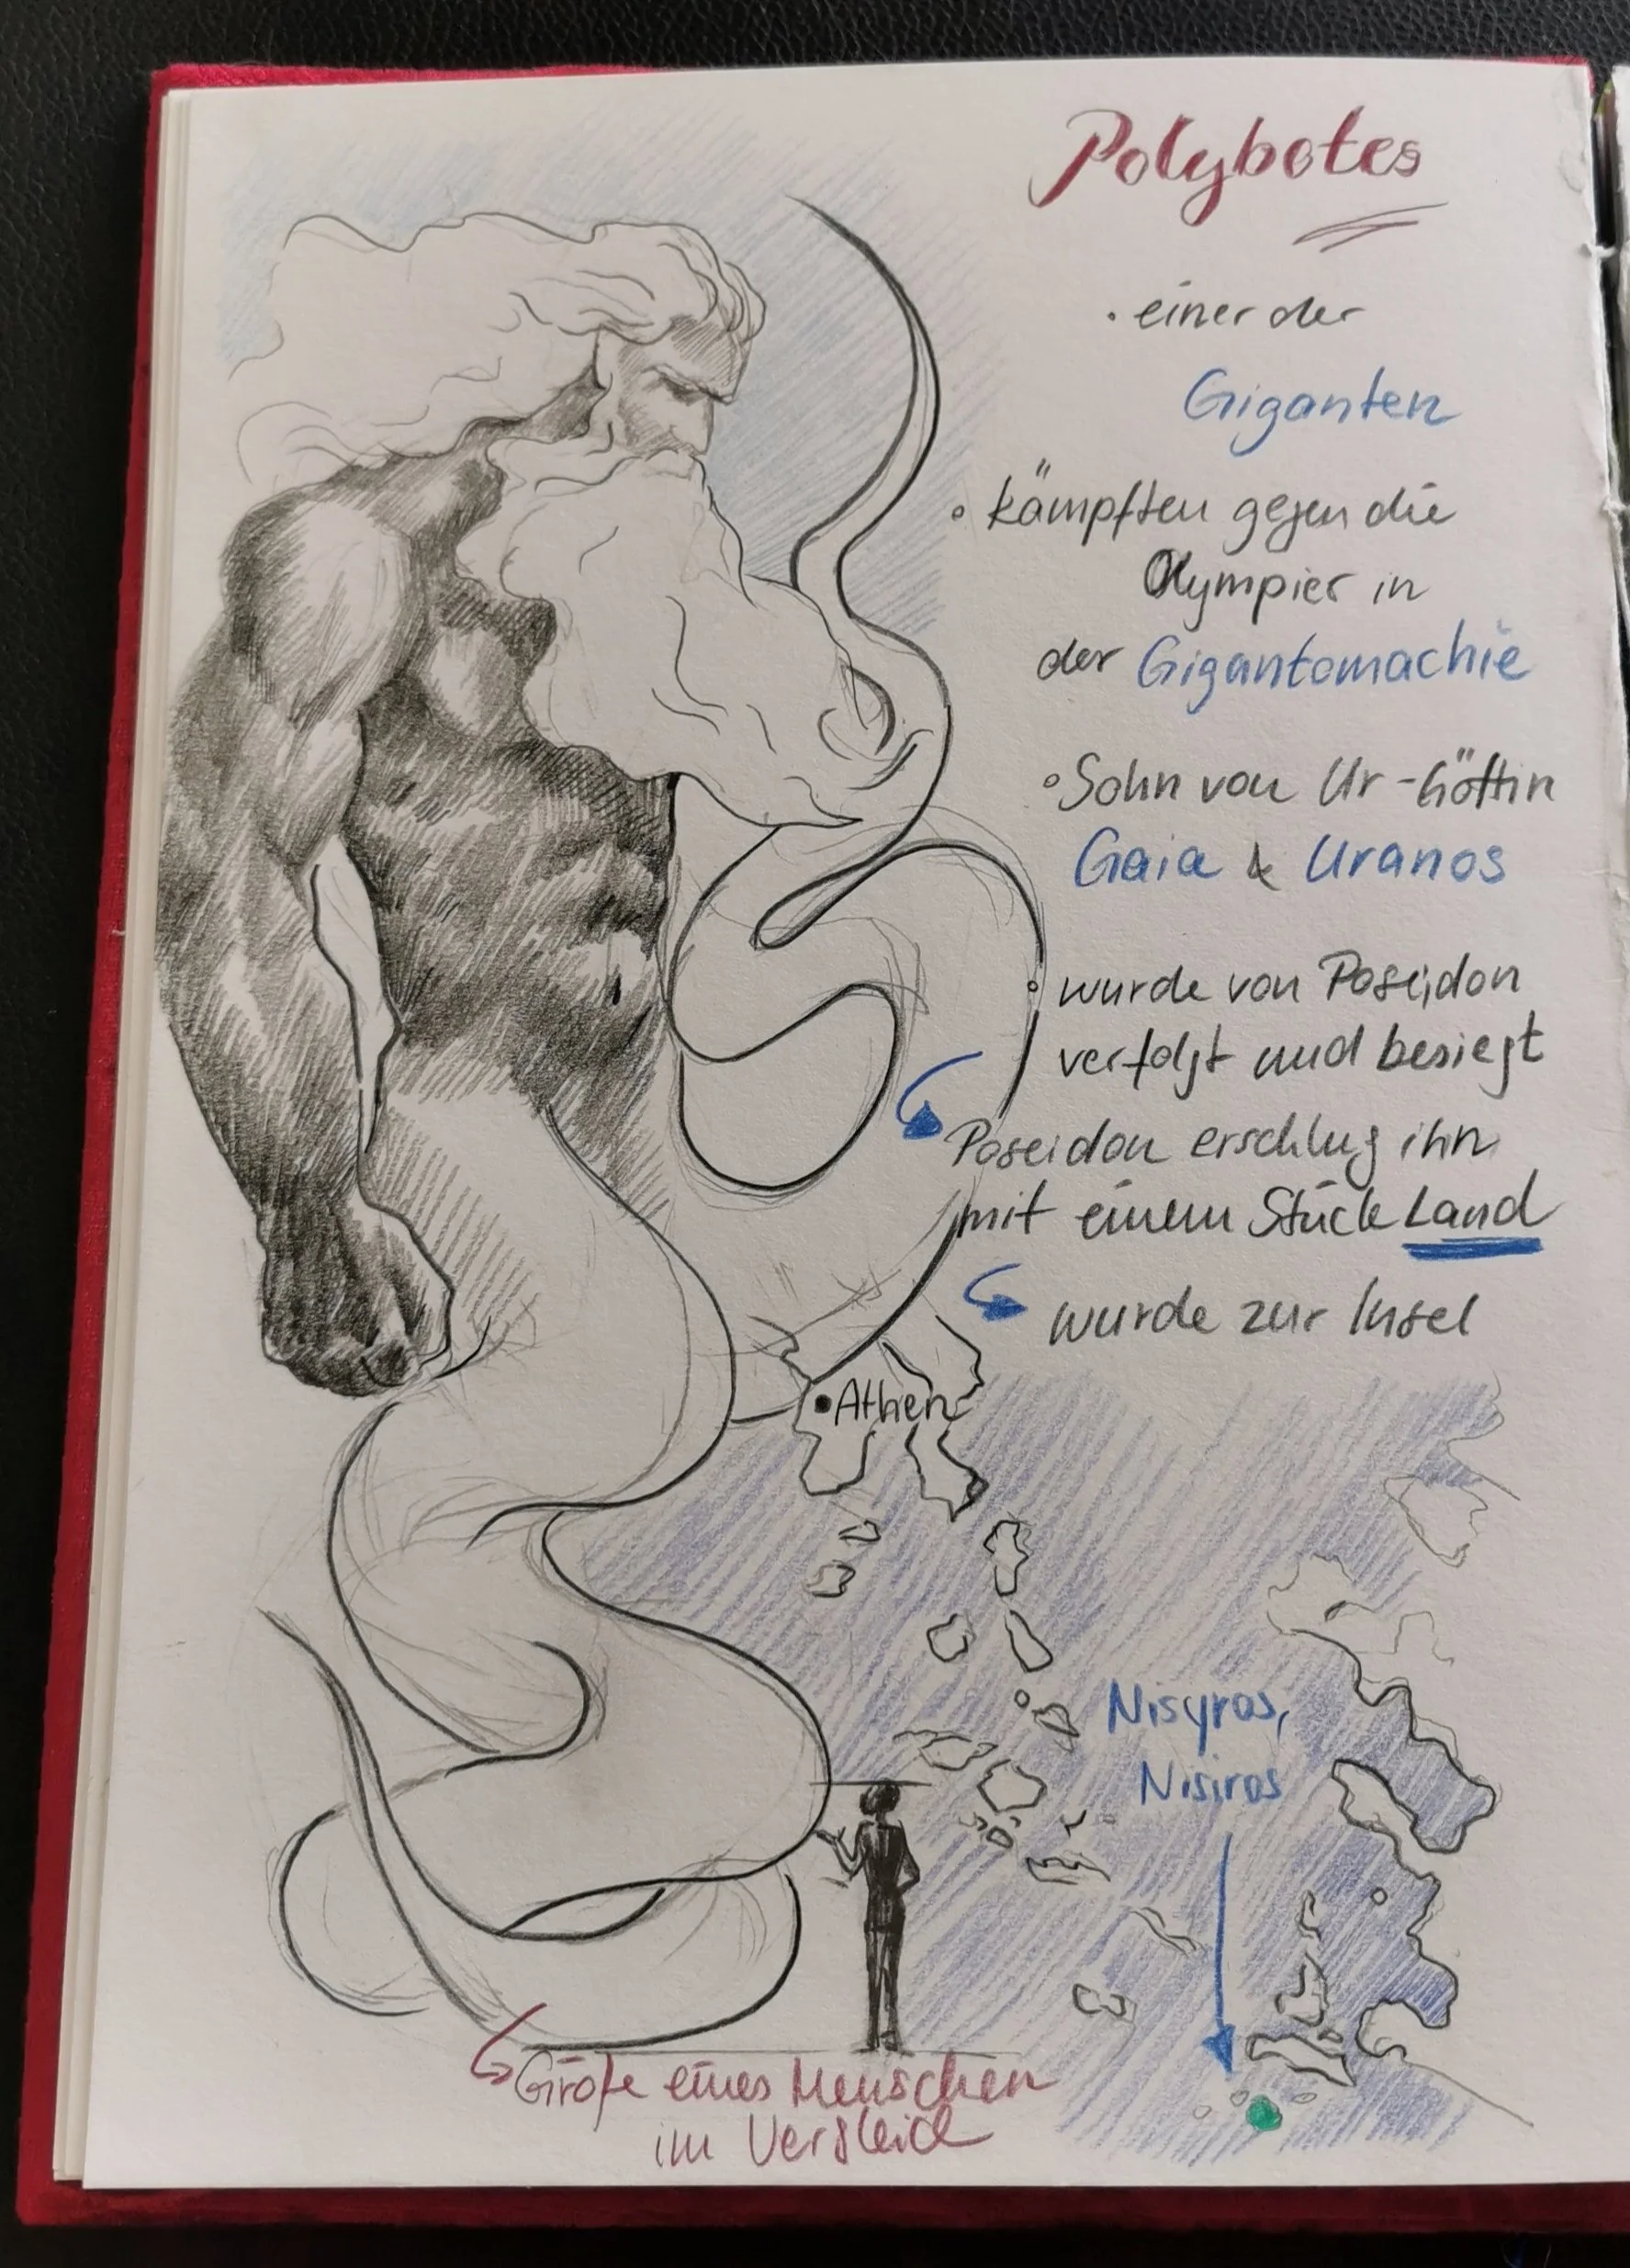 Polybotes
· einer der
Giganten
° kämpften gegen die
Olympier in
der Gigantomachie
° Sohn von Ur-Göttin
Gaia & Uranos
° wurde von Poseidon
verfolgt und besiegt
Poseidon erschlug ihn
mit einem Stück Land
wurde zur Insel
Athen
Nisyros,
Nisiros
Größe eines Menschen
im Vergleich